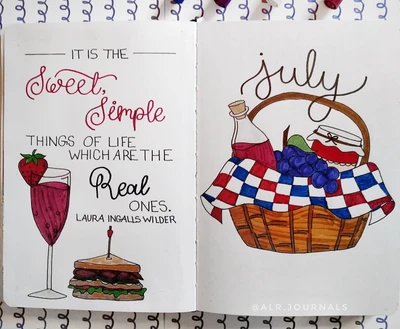 IT IS THE
Sweet,
Simple
THINGS OF LIFE
WHICH ARE THE
Real
ONES.
LAURA INGALLS WILDER
july
@ALR JOURNALS